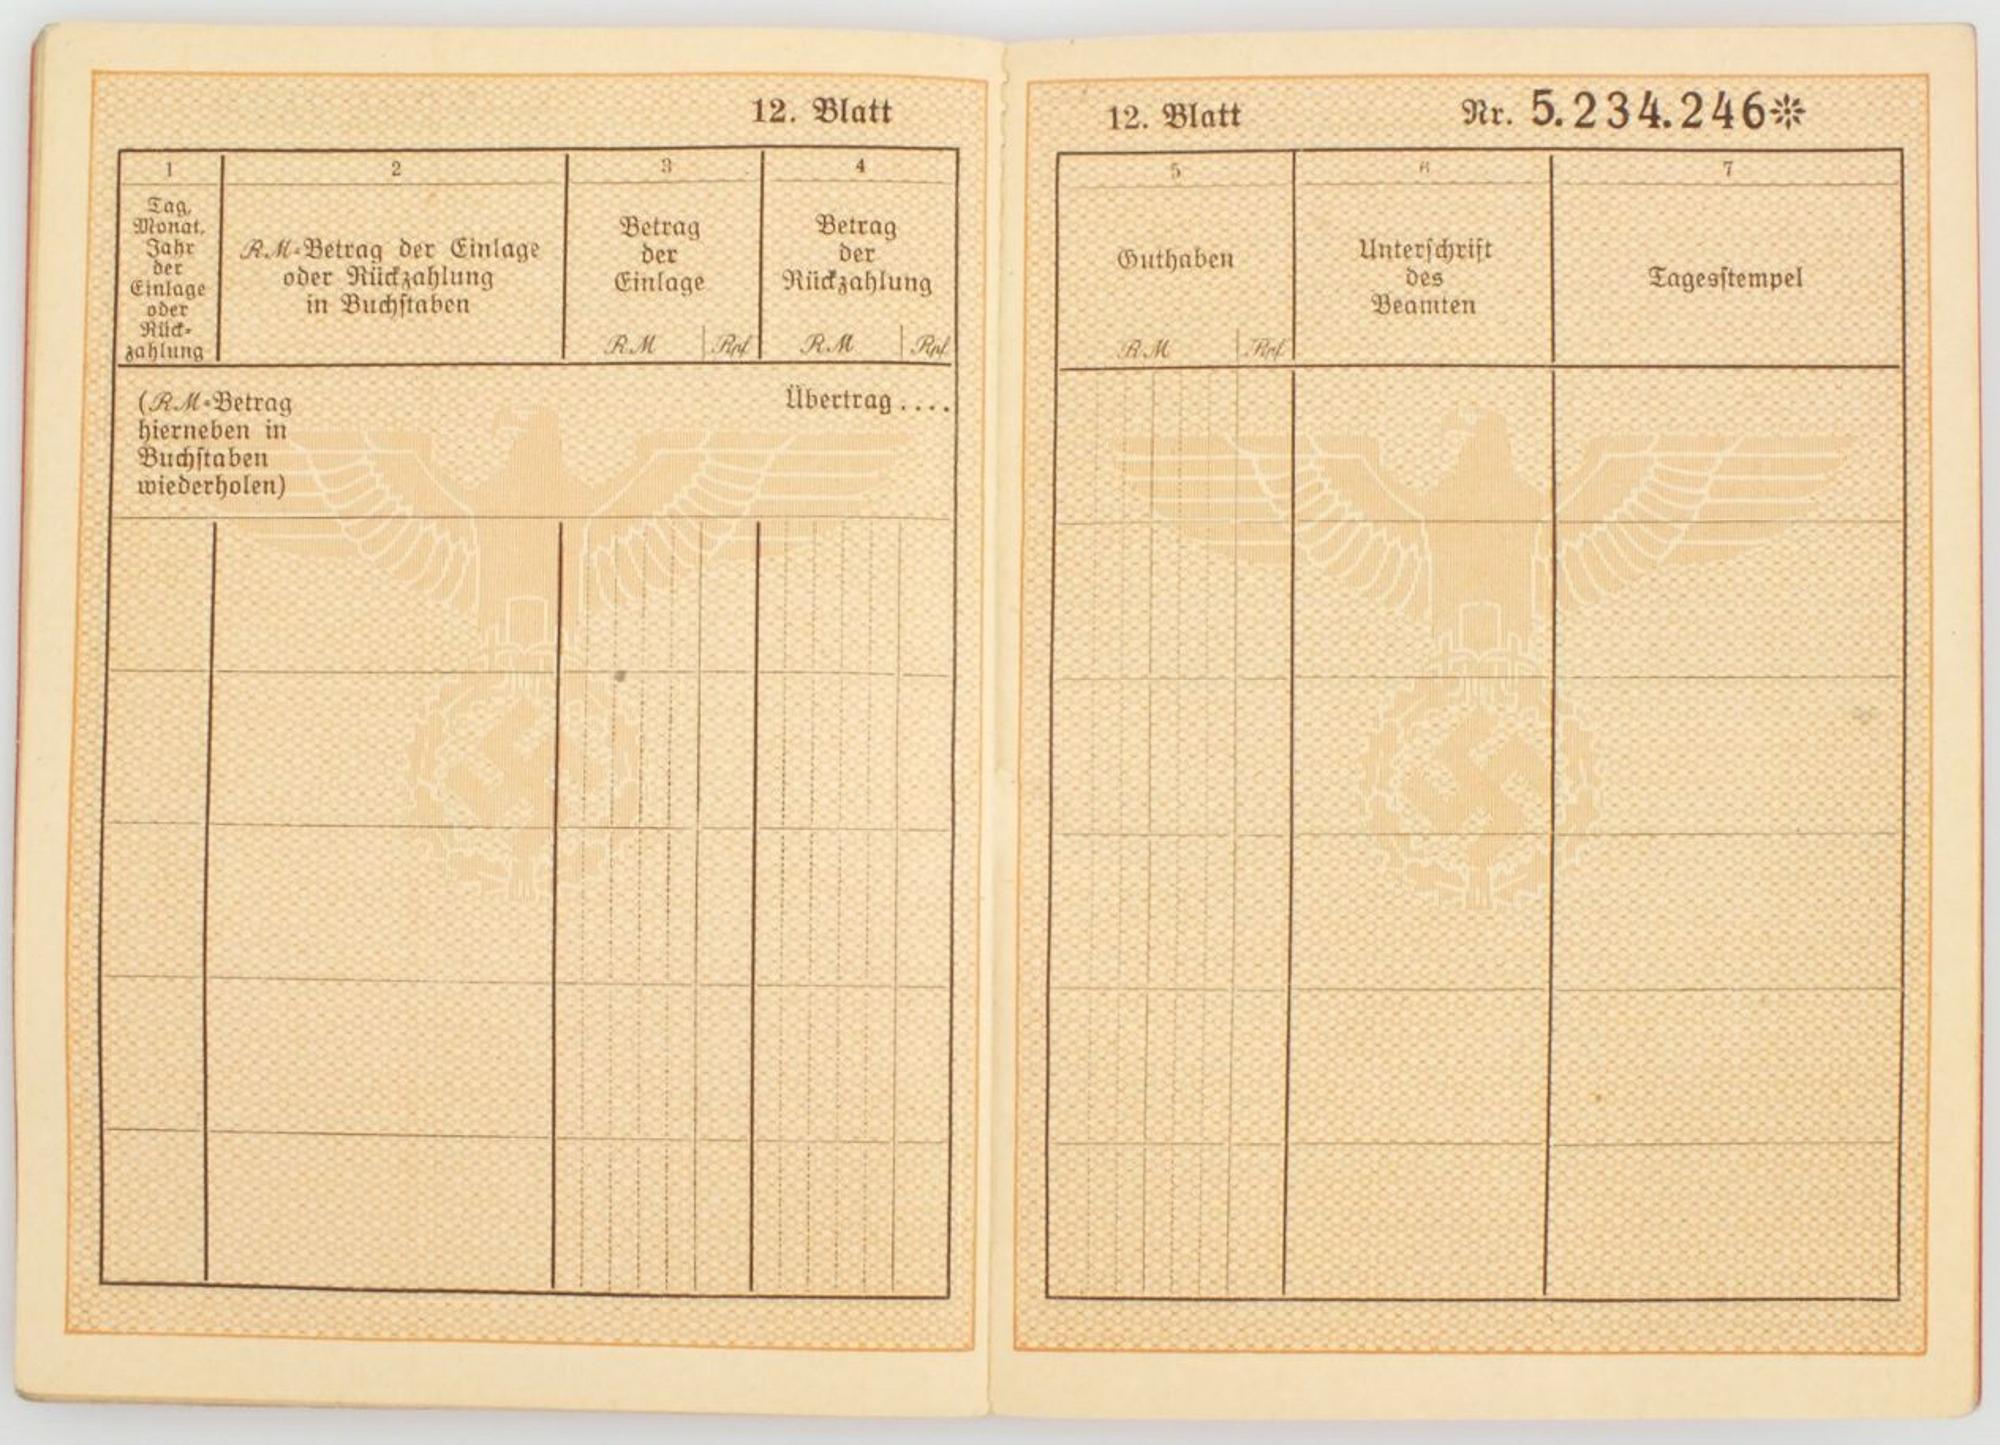 12. Blatt
1
2
3
4
Tag,
Monat,
Jahr
der
Einlage
oder
Rück-
zahlung
RM-Betrag der Einlage
oder Rückzahlung
in Buchstaben
Betrag
der
Einlage
RM Rpf
Betrag
der
Rückzahlung
RM Rpf
(RM-Betrag
hierneben in
Buchstaben
wiederholen)
Übertrag....
12. Blatt
Nr. 5.234.246*
5
6
7
Guthaben
RM Rpf
Unterschrift
des
Beamten
Tagesstempel